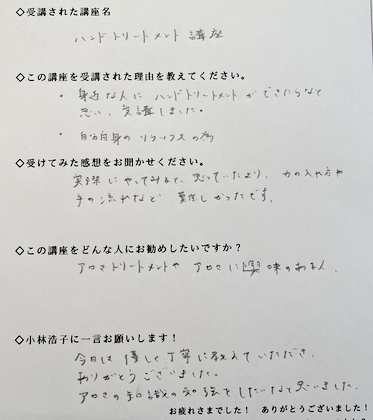 ◇受講された講座名
ハンドトリートメント講座
◇この講座を受講された理由を教えてください。
・身近な人にハンドトリートメントができたらなと
思い、受講しました。
・自分自身のリラックスの為
◇受けてみた感想をお聞かせください。
実際にやってみると、思っていたより、力の入れ方や
手の流れなど難しかったです。
◇この講座をどんな人にお勧めしたいですか?
アロマトリートメントやアロマに興味のある人、
◇小林浩子に一言お願いします!
今日は優しく丁寧に教えていただき、
ありがとうございました。
アロマの知識の勉強をしたいなと思いました。
お疲れさまでした! ありがとうございました!